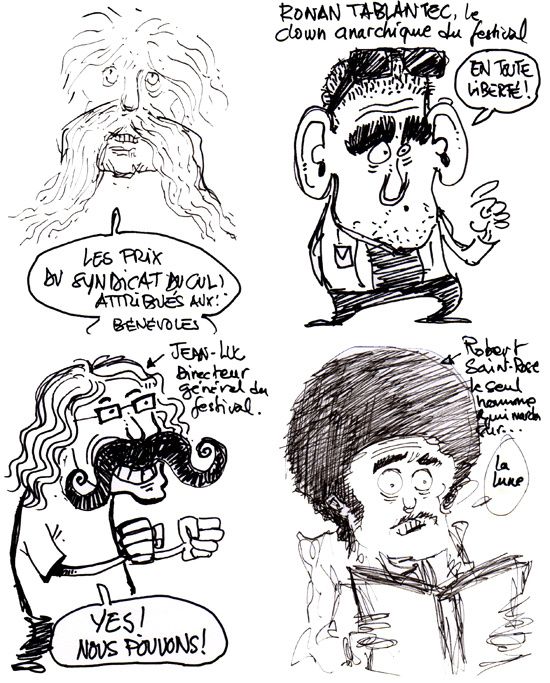 LES PRIX
DU SYNDICAT DU CUL,
ATTRIBUÉS AUX:
BÉNÉVOLES
RONAN TABLANTEC, le
clown anarchique du festival
EN TOUTE
LIBERTÉ!
JEAN-LUC
Directeur
général du
festival.
YES!
NOUS POUVONS!
Robert
Saint-Rose
le seul
homme
qui marcha
sur...
La
lune